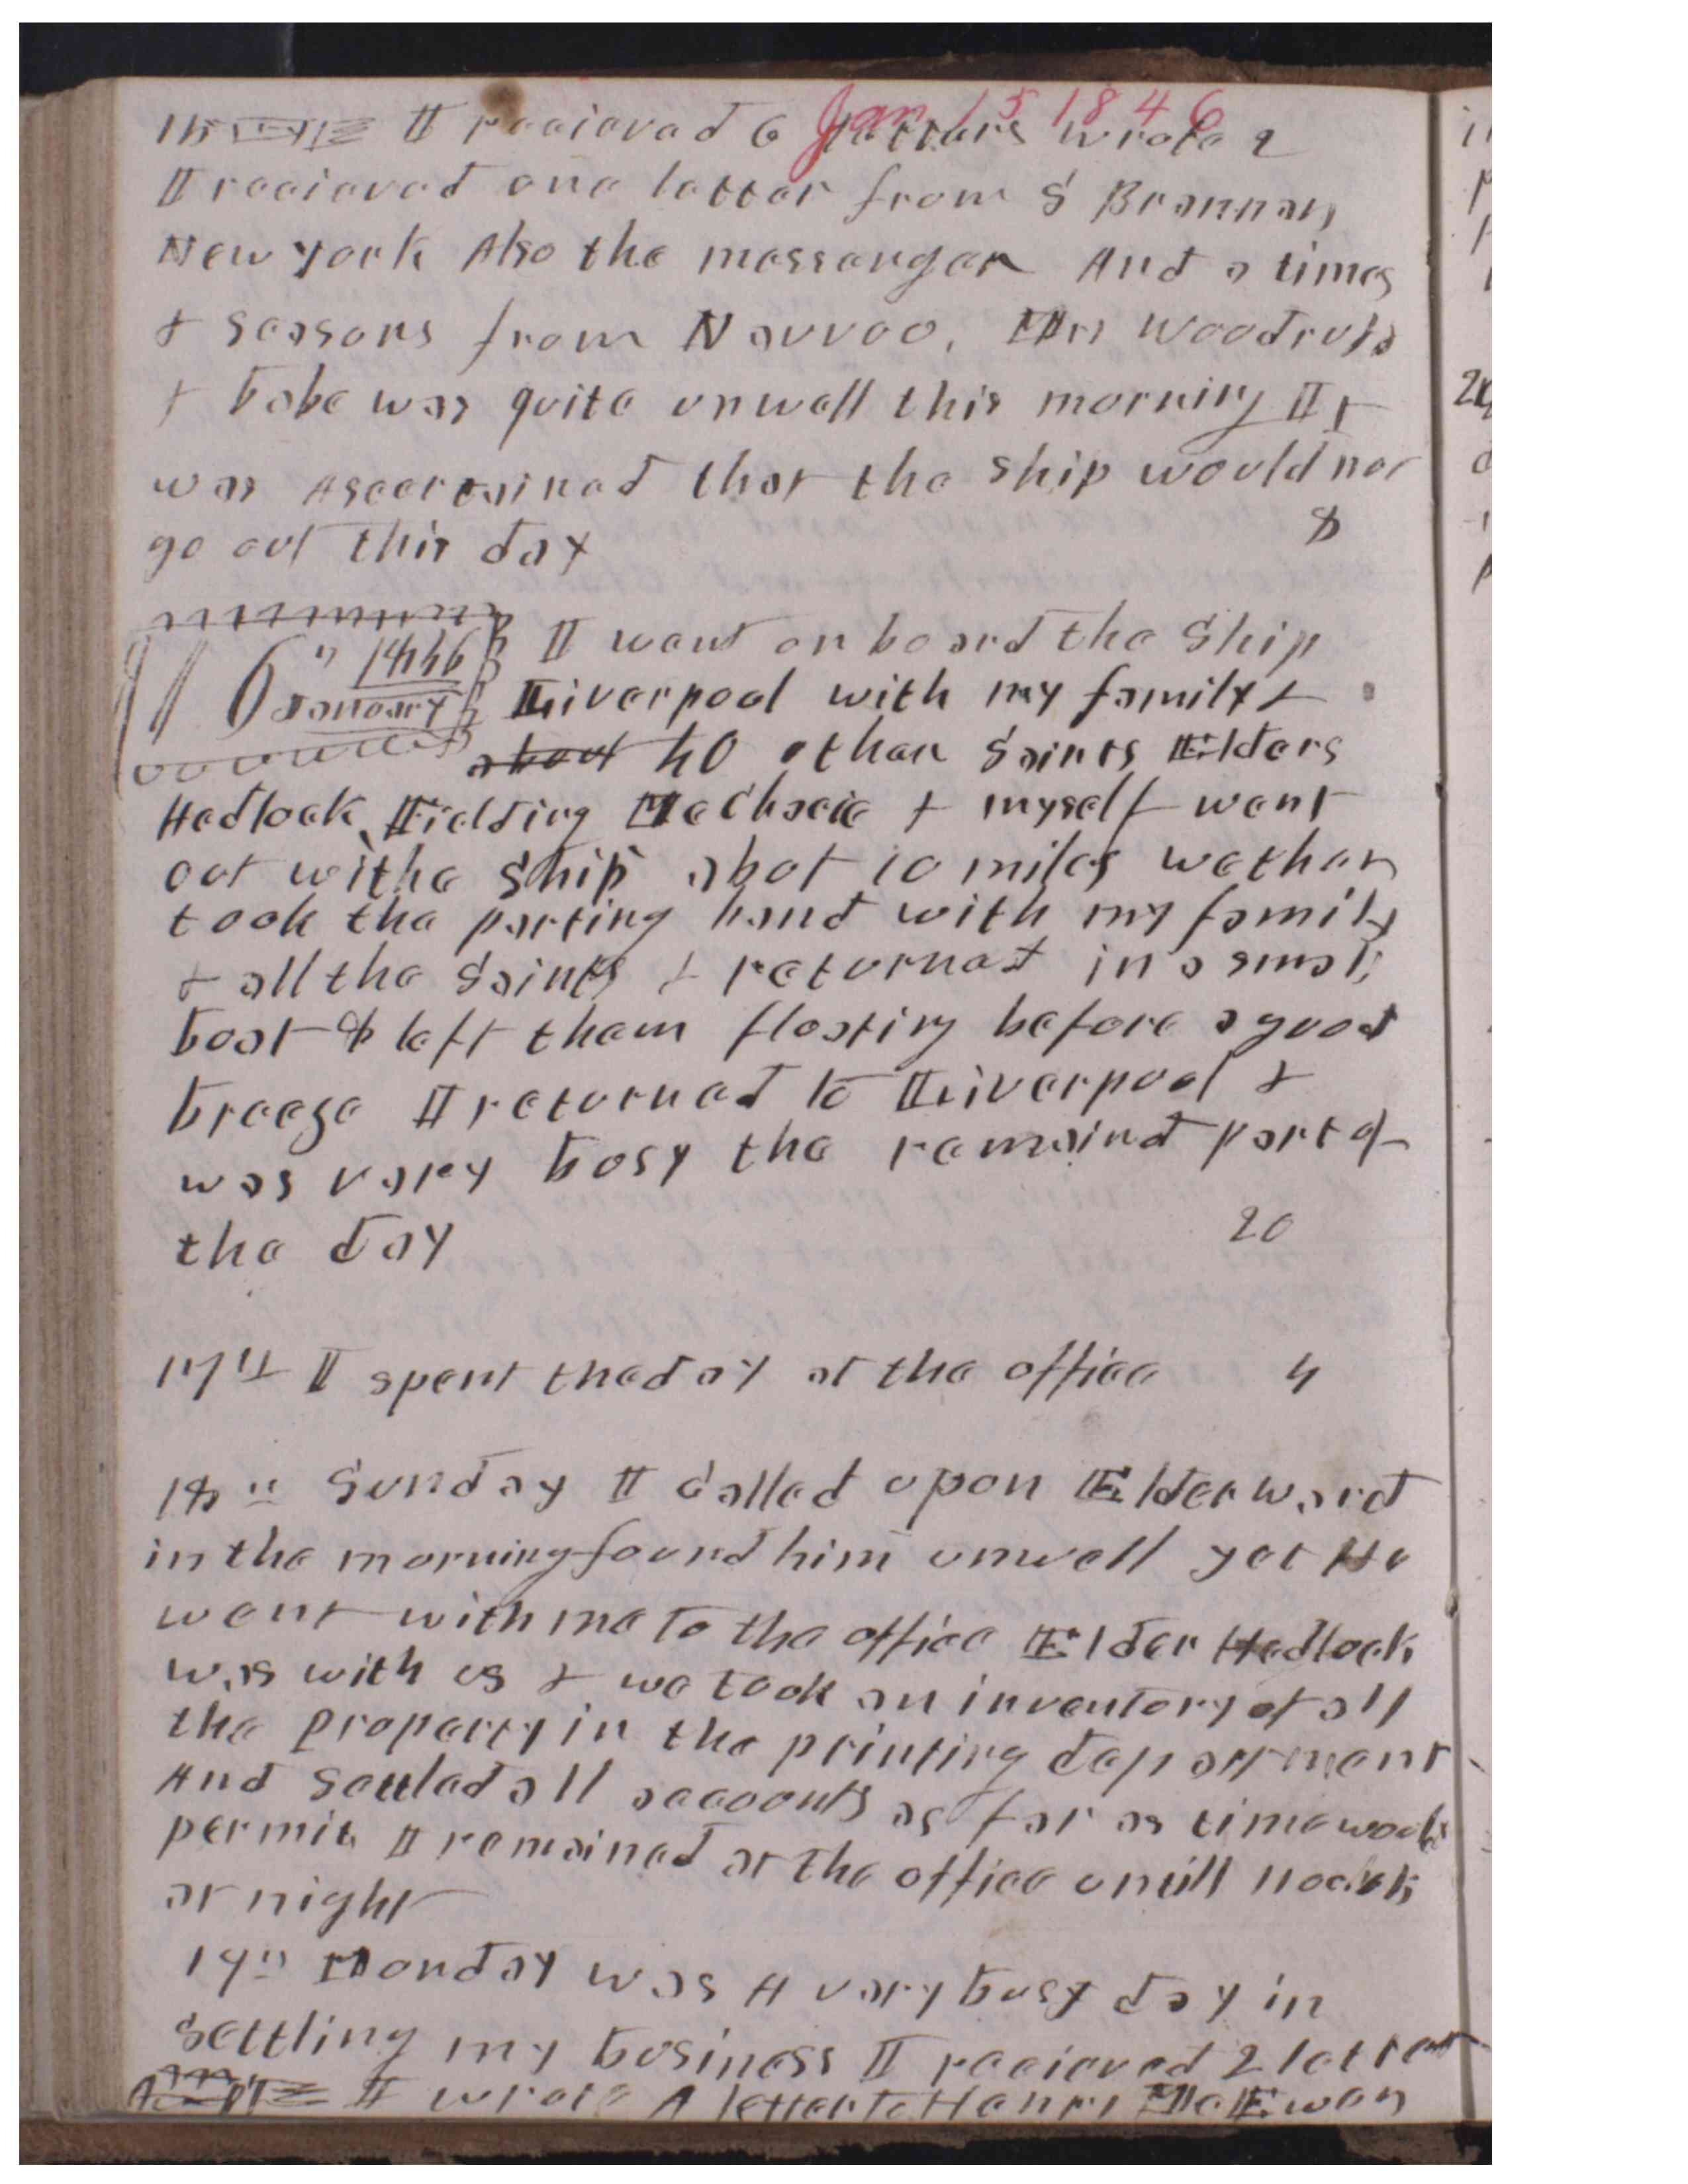 Jan 15 1846
15 I received 6 letters wrote 2
I received one letter from S Brannan
New York Also the messenger And a times
& seasons from Nauvoo. Mrs Woodruff
& babe was quite unwell this morning It
was Asceertained that the ship would not
go out this day 8
16" 1846 January I went on board the Ship
Liverpool with my family &
about 40 other Saints Elders
Hedlock, Fielding
& myself went
out withe ship abot 10 miles we than
took the parting hand with my family
& all the Saints & returned in a small
boat & left them floating before a good
breeze I returned to Liverpool &
was vary busy the remaind part of
the day 20
17th I spent the day at the office 4
18th Sunday I called upon Elder Ward
in the morning found him unwell yet He
went with me to the office Elder Hedlock
was with us & we took an inventory of all
the property in the printing department
And settled all accounts as far as time would
permit I remained at the office untill 11 oclok
at night
19th Monday was A vary busy day in
settling my business I received 2 letters
I wrote A letter to Henry McEwan